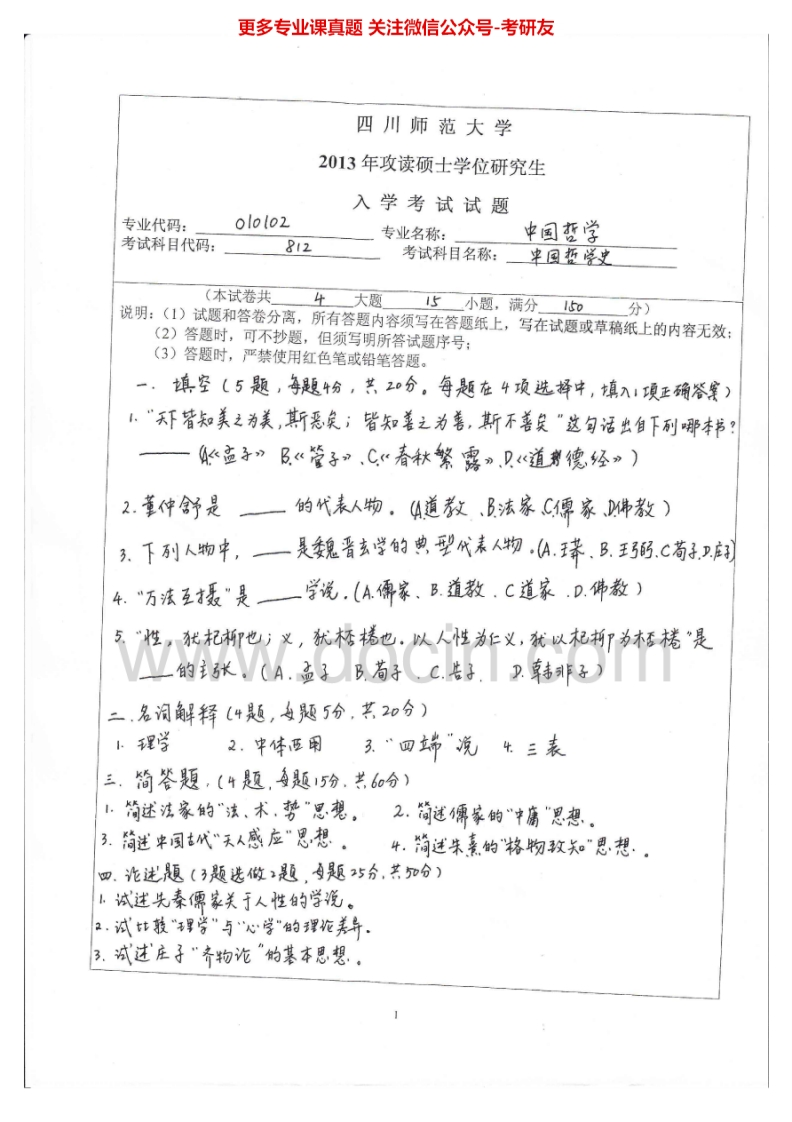 更多专业课真题 关注微信公众号-考研友
四川师范大学
2013年攻读硕士学位研究生
入学考试试题
专业代码: 010102 专业名称: 中国哲学
考试科目代码: 812 考试科目名称: 中国哲学史
(本试卷共 4 大题 15 小题,满分 150 分)
说明:(1)试题和答卷分离,所有答题内容须写在答题纸上,写在试题或草稿纸上的内容无效;
(2)答题时,可不抄题,但须写明所答试题序号;
(3)答题时,严禁使用红色笔或铅笔答题。
一. 填空(5题,每题4分,共20分。每题在4项选择中,填入1项正确答案)
1. “天下皆知美之为美,斯恶矣;皆知善之为善,斯不善矣”这句话出自下列哪本书?
——(A.《孟子》 B.《管子》、C.《春秋繁露》、D.《道德经》)
2. 董仲舒是 ____ 的代表人物。(A道教、B.法家、C.儒家、D.佛教)
3. 下列人物中,____是魏晋玄学的典型代表人物。(A.王莽、B.王弼、C荀子、D.庄子)
4. “万法互摄”是____学说。(A.儒家、B.道教、C道家、D.佛教)
5. “性,犹杞柳也;义,犹桮棬也。以人性为仁义,犹以杞柳为桮棬”是
____的主张。(A.孟子 B.荀子 C.告子 D.韩非子)
www.docin.com
二. 名词解释(4题,每题5分,共20分)
1. 理学 2. 中体西用 3. “四端”说 4. 三表
三. 简答题.(4题,每题15分,共60分)
1. 简述法家的“法、术、势”思想。 2. 简述儒家的“中庸”思想。
3. 简述中国古代“天人感应”思想。 4. 简述朱熹的“格物致知”思想。
四. 论述题(3题选做2题,每题25分,共50分)
1. 试述先秦儒家关于人性的学说。
2. 试比较“理学”与“心学”的理论差异。
3. 试述庄子“齐物论”的基本思想。
1